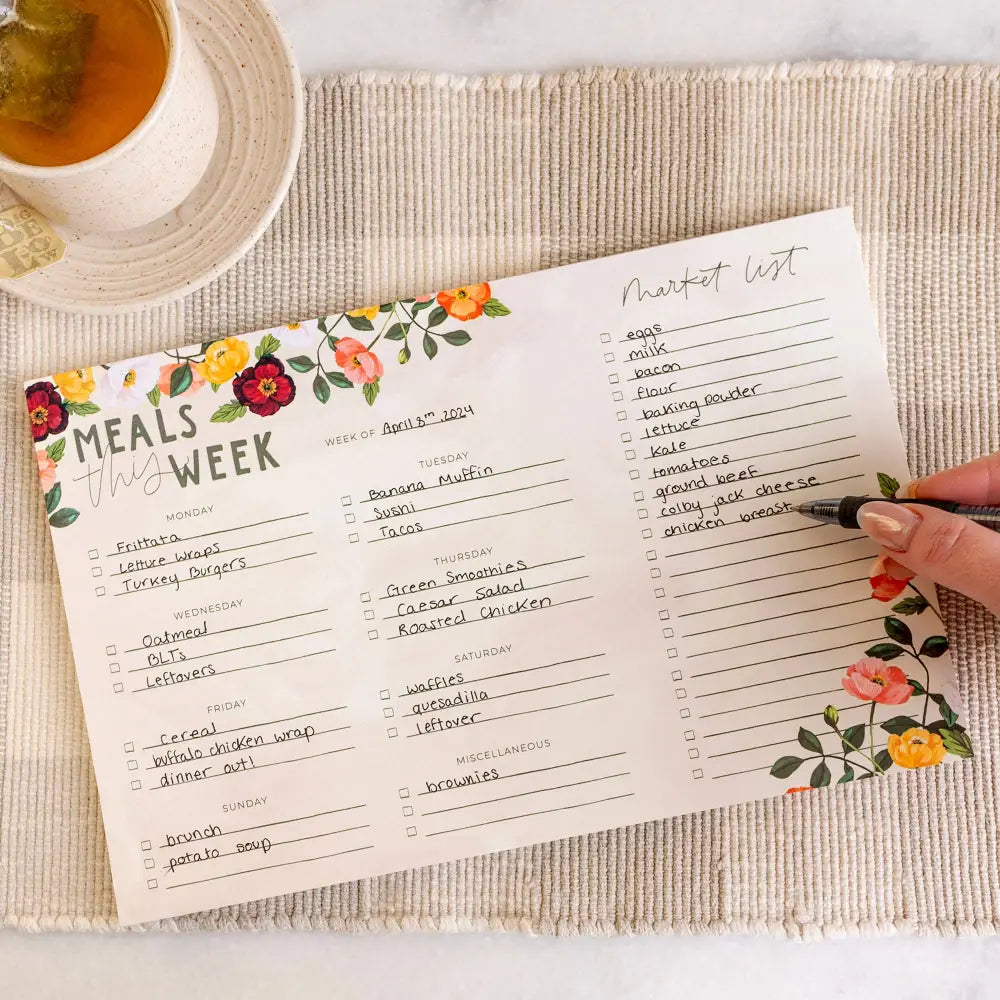 MEALS
this WEEK
WEEK OF April 8th, 2024
MONDAY
Frittata
Lettuce wraps
Turkey Burgers
TUESDAY
Banana Muffin
Sushi
Tacos
WEDNESDAY
Oatmeal
BLTs
Leftovers
THURSDAY
Green Smoothies
Caesar Salad
Roasted Chicken
FRIDAY
Cereal
buffalo chicken wrap
dinner out!
SATURDAY
waffles
quesadilla
leftover
SUNDAY
brunch
potato soup
MISCELLANEOUS
brownies
Market list
eggs
milk
bacon
flour
baking powder
lettuce
kale
tomatoes
ground beef
colby jack cheese
chicken breast